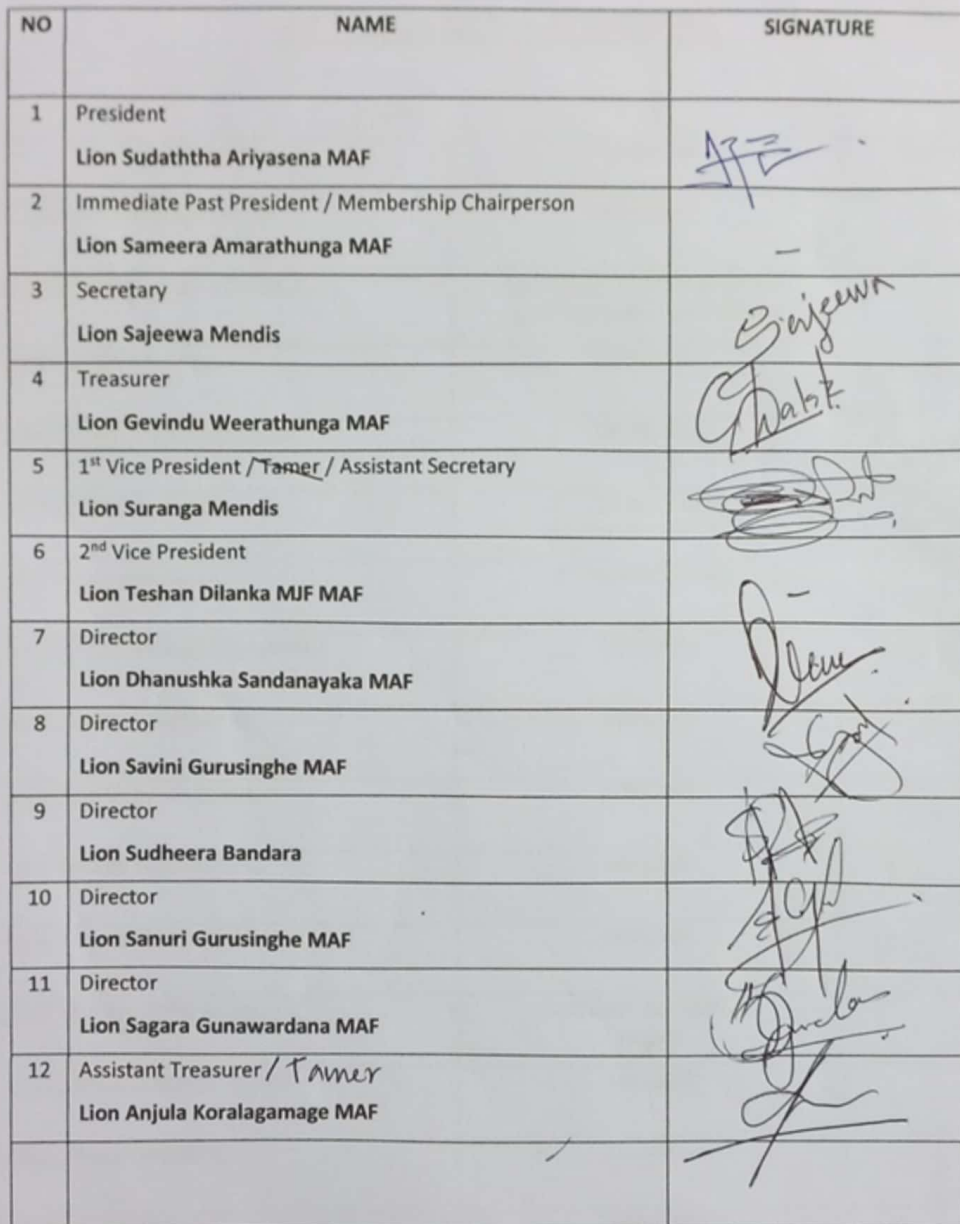 NO NAME SIGNATURE
1 President
Lion Sudaththa Ariyasena MAF
2 Immediate Past President / Membership Chairperson
Lion Sameera Amarathunga MAF –
3 Secretary
Lion Sajeewa Mendis Sajeewa
4 Treasurer
Lion Gevindu Weerathunga MAF
5 1st Vice President / Tamer / Assistant Secretary
Lion Suranga Mendis
6 2nd Vice President
Lion Teshan Dilanka MJF MAF –
7 Director
Lion Dhanushka Sandanayaka MAF
8 Director
Lion Savini Gurusinghe MAF
9 Director
Lion Sudheera Bandara
10 Director
Lion Sanuri Gurusinghe MAF
11 Director
Lion Sagara Gunawardana MAF
12 Assistant Treasurer / Tamer
Lion Anjula Koralagamage MAF